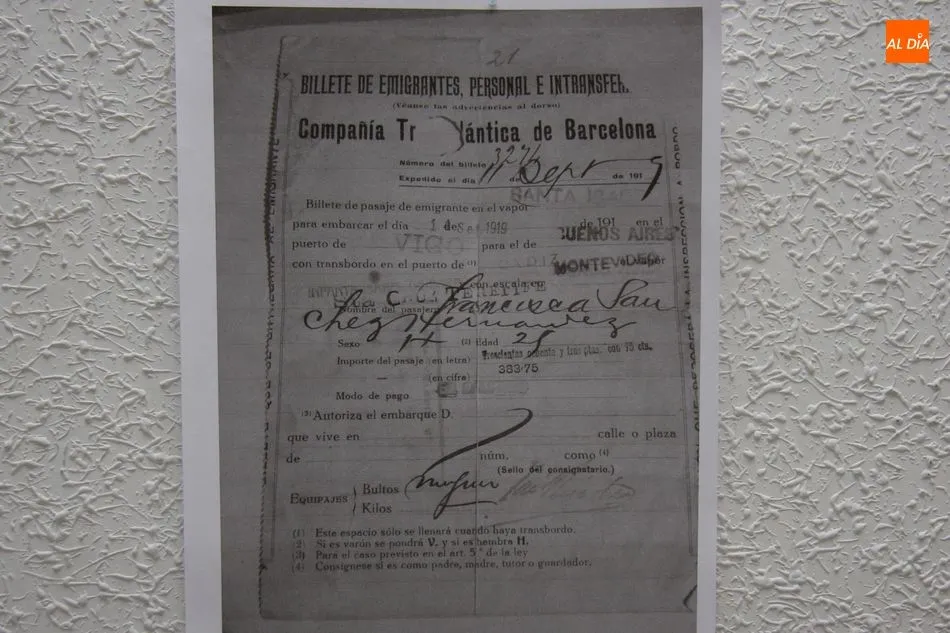 AL DÍA
21
BILLETE DE EMIGRANTES, PERSONAL E INTRANSFER.
(Véanse las advertencias al dorso)
Compañía Tr lántica de Barcelona
Número del billete 327
Expedido el día 11 de Sept de 1919
SANTA ISABEL
Billete de pasaje de emigrante en el vapor
para embarcar el día 14 de Se 1919 de 191 en el
puerto de VIGO para el de BUENOS AIRES
con transbordo en el puerto de (1) CADIZ MONTEVIDEO vapor
con escala en
Sta C. de TENERIFE
Nombre del pasajero Francisca San
chez Hernandez
Sexo H (2) Edad 25
Importe del pasaje (en letra) Trescientas ochenta y tres ptas. con 75 cts.
— (en cifra) 383·75
Modo de pago
(3) Autoriza el embarque D.
que vive en calle o plaza
de núm. como (4)
(Sello del consignatario.)
EQUIPAJES Bultos
Kilos
(1) Este espacio sólo se llenará cuando haya transbordo.
(2) Si es varón se pondrá V. y si es hembra H.
(3) Para el caso previsto en el art. 5º de la ley
(4) Consígnese si es como padre, madre, tutor o guardador.